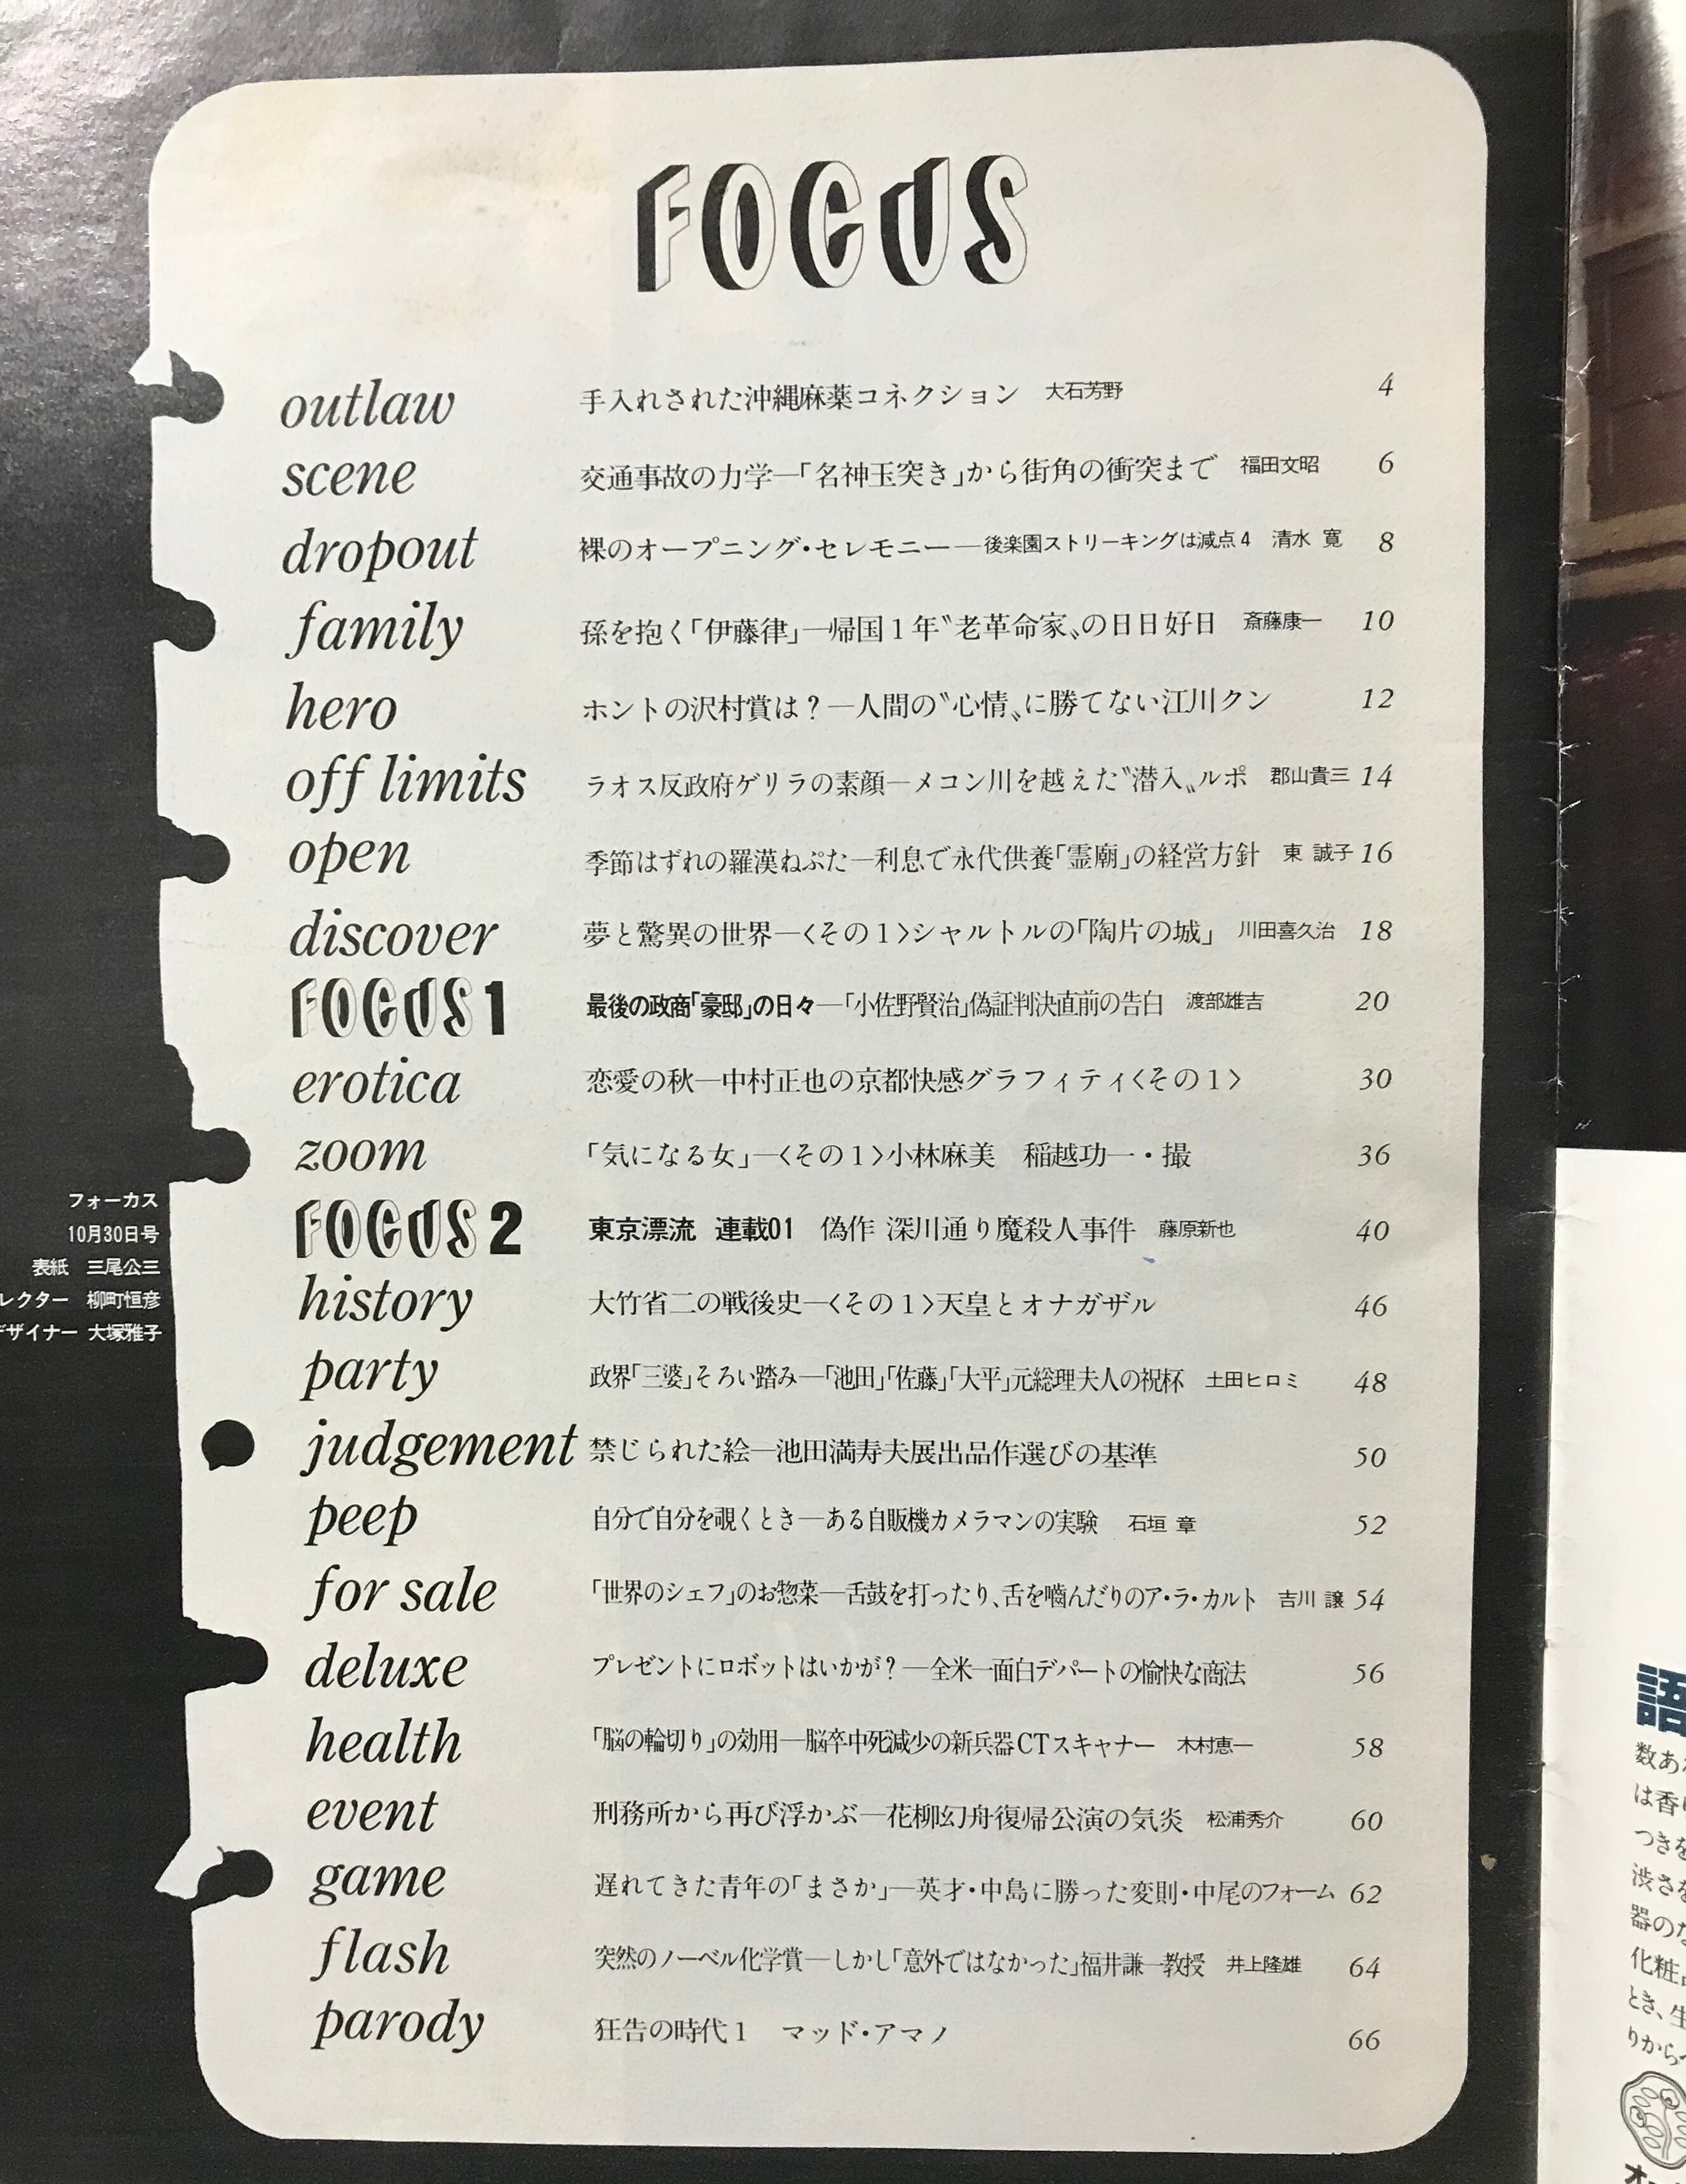 FOCUS
outlaw 手入れされた沖縄麻薬コネクション 大石芳野 4
scene 交通事故の力学―「名神玉突き」から街角の衝突まで 福田文昭 6
dropout 裸のオープニング・セレモニー―後楽園ストリーキングは減点4 清水 寛 8
family 孫を抱く「伊藤律」―帰国1年〝老革命家〟の日日好日 斎藤康一 10
hero ホントの沢村賞は?―人間の〝心情〟に勝てない江川クン 12
off limits ラオス反政府ゲリラの素顔―メコン川を越えた〝潜入〟ルポ 郡山貴三 14
open 季節はずれの羅漢ねぷた―利息で永代供養「霊廟」の経営方針 東 誠子 16
discover 夢と驚異の世界―〈その1〉シャルトルの「陶片の城」 川田喜久治 18
FOCUS 1 最後の政商「豪邸」の日々―「小佐野賢治」偽証判決直前の告白 渡部雄吉 20
erotica 恋愛の秋―中村正也の京都快感グラフィティ〈その1〉 30
zoom 「気になる女」―〈その1〉小林麻美 稲越功一・撮 36
FOCUS 2 東京漂流 連載01 偽作 深川通り魔殺人事件 藤原新也 40
history 大竹省二の戦後史―〈その1〉天皇とオナガザル 46
party 政界「三婆」そろい踏み―「池田」「佐藤」「大平」元総理夫人の祝杯 土田ヒロミ 48
judgement 禁じられた絵―池田満寿夫展出品作選びの基準 50
peep 自分で自分を覗くとき―ある自販機カメラマンの実験 石垣 章 52
for sale 「世界のシェフ」のお惣菜―舌鼓を打ったり、舌を嚙んだりのア・ラ・カルト 吉川 譲 54
deluxe プレゼントにロボットはいかが?―全米一面白デパートの愉快な商法 56
health 「脳の輪切り」の効用―脳卒中死減少の新兵器CTスキャナー 木村恵一 58
event 刑務所から再び浮かぶ―花柳幻舟復帰公演の気炎 松浦秀介 60
game 遅れてきた青年の「まさか」―英才・中島に勝った変則・中尾のフォーム 62
flash 突然のノーベル化学賞―しかし「意外ではなかった」福井謙一教授 井上隆雄 64
parody 狂告の時代1 マッド・アマノ 66
フォーカス
10月30日号
表紙 三尾公三
レクター 柳町恒彦
デザイナー 大塚雅子
語
数あ
は香り
つきを
渋さを
器のな
化粧
とき、生
りから